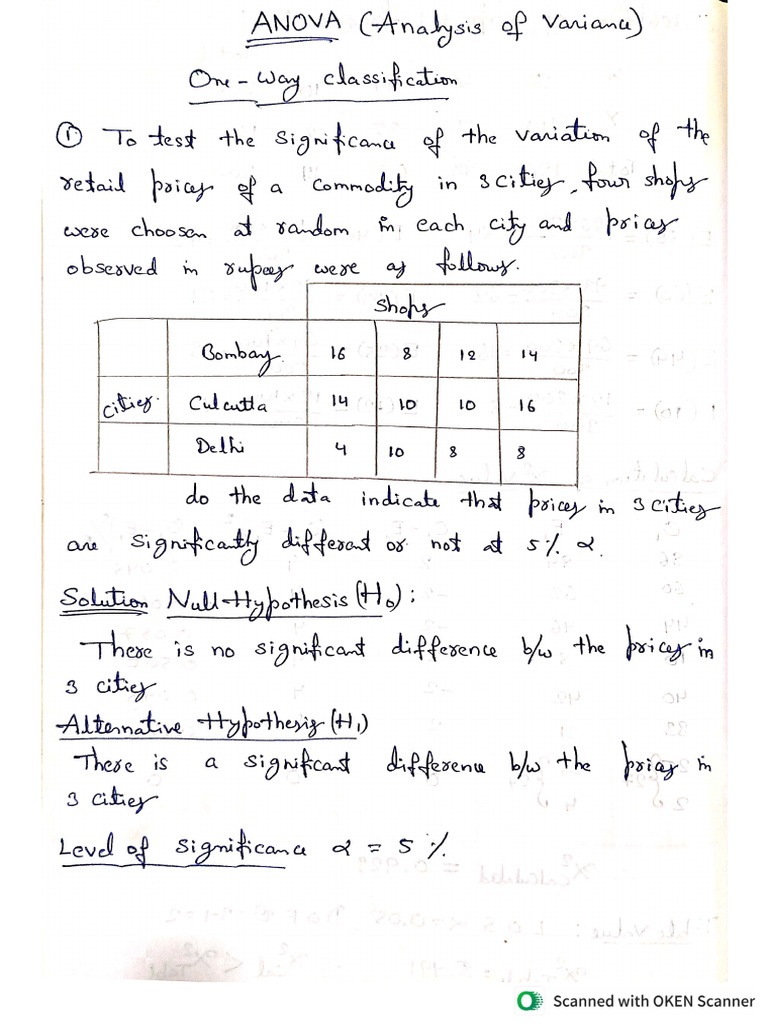 ANOVA (Analysis of Variance)
One-Way classification
① To test the significance of the variation of the
retail prices of a commodity in 3 cities, four shops
were choosen at random in each city and prices
observed in rupees were as follows.
Shops
Bombay 16 8 12 14
cities. Culcutta 14 10 10 16
Delhi 4 10 8 8
do the data indicate that prices in 3 cities
are significantly different or not at 5% α.
Solution Null-Hypothesis (H₀):
There is no significant difference b/w the prices in
3 cities
Alternative Hypothesis (H₁)
There is a significant difference b/w the prices in
3 cities
Level of significance α = 5%.
Scanned with OKEN Scanner